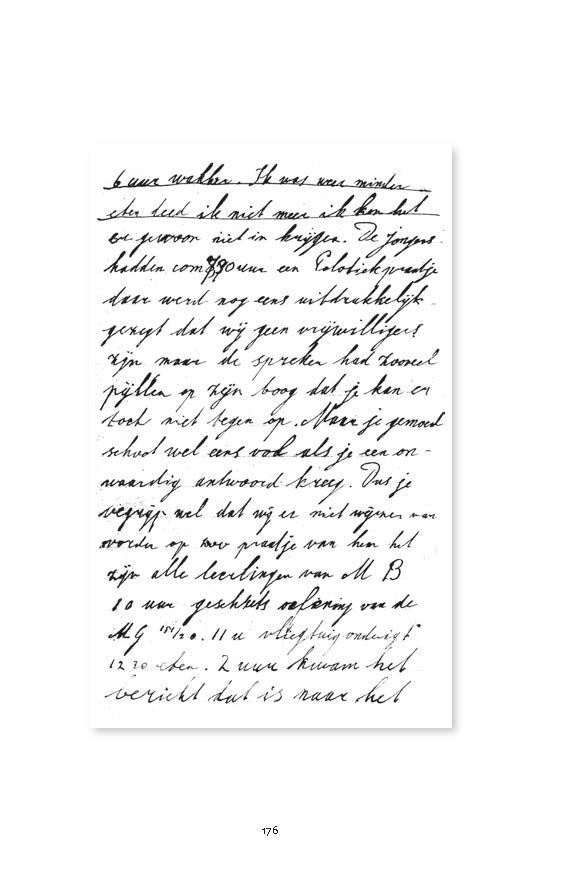 6 uur wakker. Ik was weer minder
eten deed ik niet meer ik kon het
er gewoon niet in krijgen. De jongens
hadden om 730 uur een Polotiek praatje
daar werd nog eens uitdrukkelijk
gezegt dat wij geen vrijwilligers
zijn maar de spreker had zooveel
pijllen op zijn boog dat je kan er
toch niet tegen op. Maar je gemoed
schoot wel eens vol als je een on-
waardig antwoord kreeg. Dus je
begrijp wel dat wij er niet wijzer van
worden op zoo praatje van hen het
zijn alle leerlingen van M B
10 uur geschuts oefening van de
MG 151/20. 11 u vliegtuig onderigt
12 30 eten. 2 uur kwam het
bericht dat is naar het
176